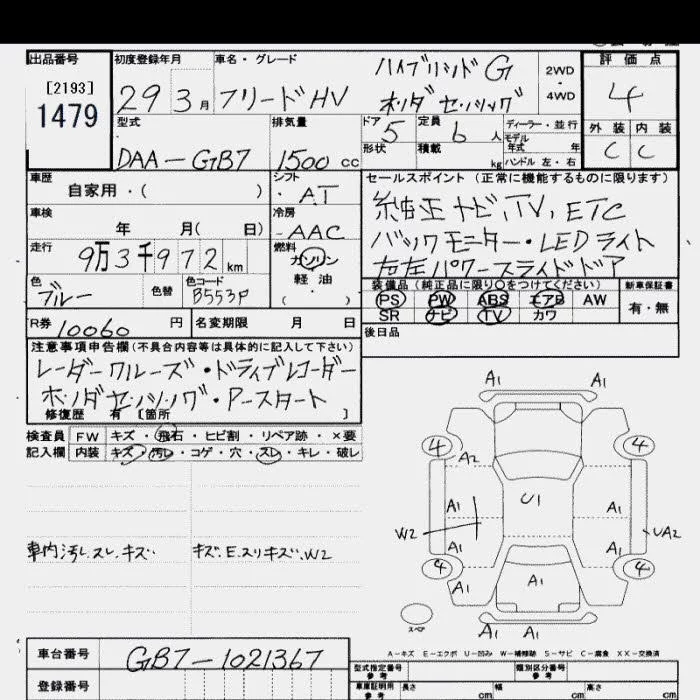 出品番号 初度登録年月 車名・グレード ハイブリッド G 2WD 4WD 評価点
[2193] 1479 29 3月 フリードHV ホンダセンシング 4
型式 排気量 ドア 5 定員 6人 ディーラー・並行 外装 内装
DAA-GB7 1500cc 形状 積載 kg モデル年式 年 ハンドル 左・右 C C
車歴 シフト セールスポイント (正常に機能するものに限ります)
自家用・( ) ・AT 純正ナビ,TV,ETC
車検 冷房 バックモニター・LEDライト
年 月( 日) -AAC 右左パワースライドドア
走行 9万3千972km 燃料 ガソリン
軽油
・( )
色 ブルー 色替 色コード B553P
装備品 (純正品に限り○をつけてください) 新車保証書
PS PW ABS エアB AW 有・無
SR ナビ TV カワ
R券 10060円 名変期限 月 日 後日品
注意事項申告欄(不具合内容等は具体的に記入して下さい)
レーダークルーズ・ドライブレコーダー
ホンダセンシング・アースタート
修復歴 有 〔箇所 〕
検査員 FW キズ・飛石・ヒビ割・リペア跡・×要
記入欄 内装 キズ・汚レ・コゲ・穴・スレ・キレ・破レ
車内汚レ.スレ.キズ キズ.E.スリキズ.W2
A1 A1
4 4
A2
U1
A1 A1
W2 UA2
A1 A1
4 4
A1 A1 A1
スペア
A1 A1
A-キズ E-エクボ U-凹み W-補修跡 S-サビ C-腐食 XX-交換済
車台番号 GB7-1021367
登録番号
型式指定番号 参考 類別区分番号 参考
車庫証明用 参考 長さ cm 幅 cm 高さ cm